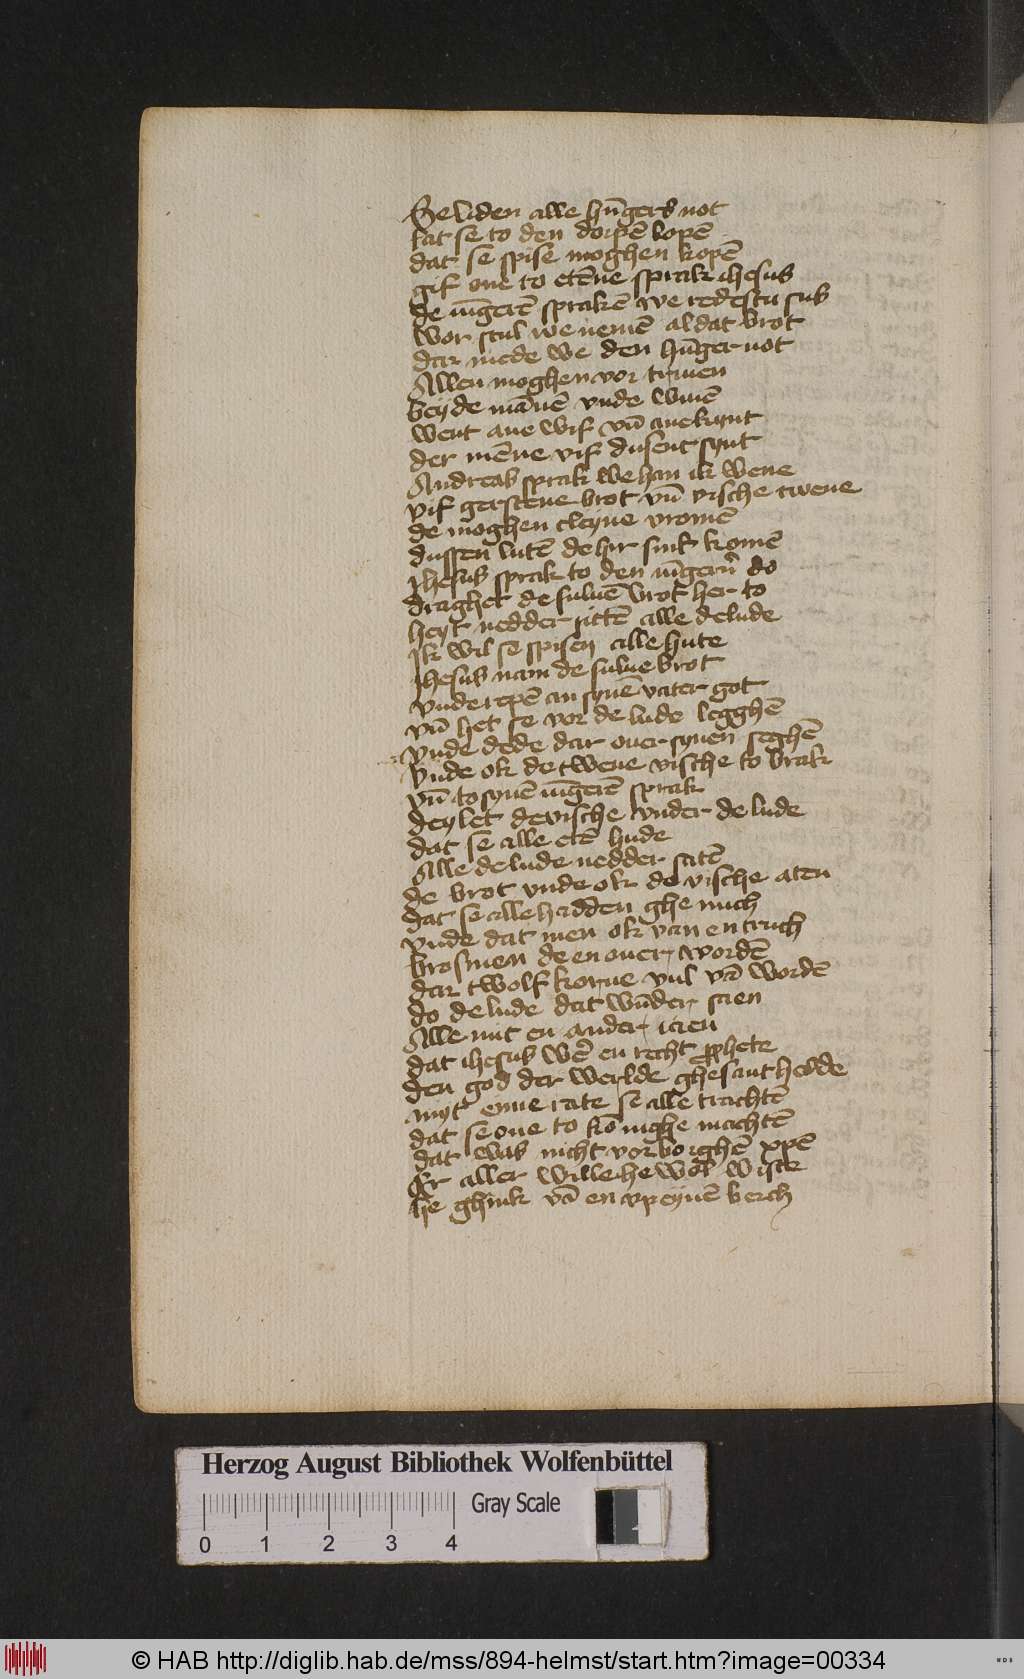 Se liden alle hūgers not
lat se to den dorpē lopē
dat se spise moghen kopē
gif one to etēne sprak ihesus
de iūgerē sprakē we redestu sus
wor scul we nemē al dat brot
dar mede we den hūger not
Allen moghen vor triuen
beyde mānē vnde wiuē
went ane wif vn̄ ane kynt
der mēne vif dusent synt
Andreas sprak we han ik wene
vif gerstene brot vn̄ vische twene
de moghen cleyne vromē
dussen lutē de hir sint komē
Ihesus sprak to den iūgern̄ do
draghet de suluē brot her to
heyt nedder sittē alle de lude
Ik wil se spisen alle hute
Ihesus nam de sulue brot
vnde repē an synē vater got
vn̄ het se vor de lude legghē
vnde dede dar ouer synen seghē
Vnde ok de twene vische to brak
vn̄ to synē iūgerē sprak
deylet de vische vnder de lude
dat se alle etē hude
Alle de lude nedder satē
de brot vnde ok de vische aten
dat se alle hadden ghe nuch
vnde dat men ok van en truch
brosmen de en ouer wordē
dar twolf korue vul vā wordē
do de lude dat wūder saen
Alle mit en ander iaen
dat ihesus wē en recht ꝓphete
den god der werlde ghesant hedde
myt eyne rate se alle trachtē
dat se one to kōnighe machtē
dat was nicht vorborghē xpē
Er aller wille he wol wiste
he ghink vā en vp eynē berch
Herzog August Bibliothek Wolfenbüttel
Gray Scale
0 1 2 3 4
© HAB http://diglib.hab.de/mss/894-helmst/start.htm?image=00334